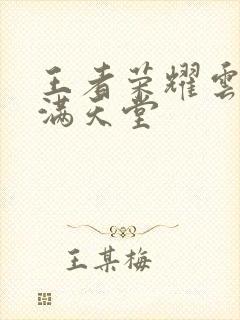 王者荣耀雲
满天堂
王某梅